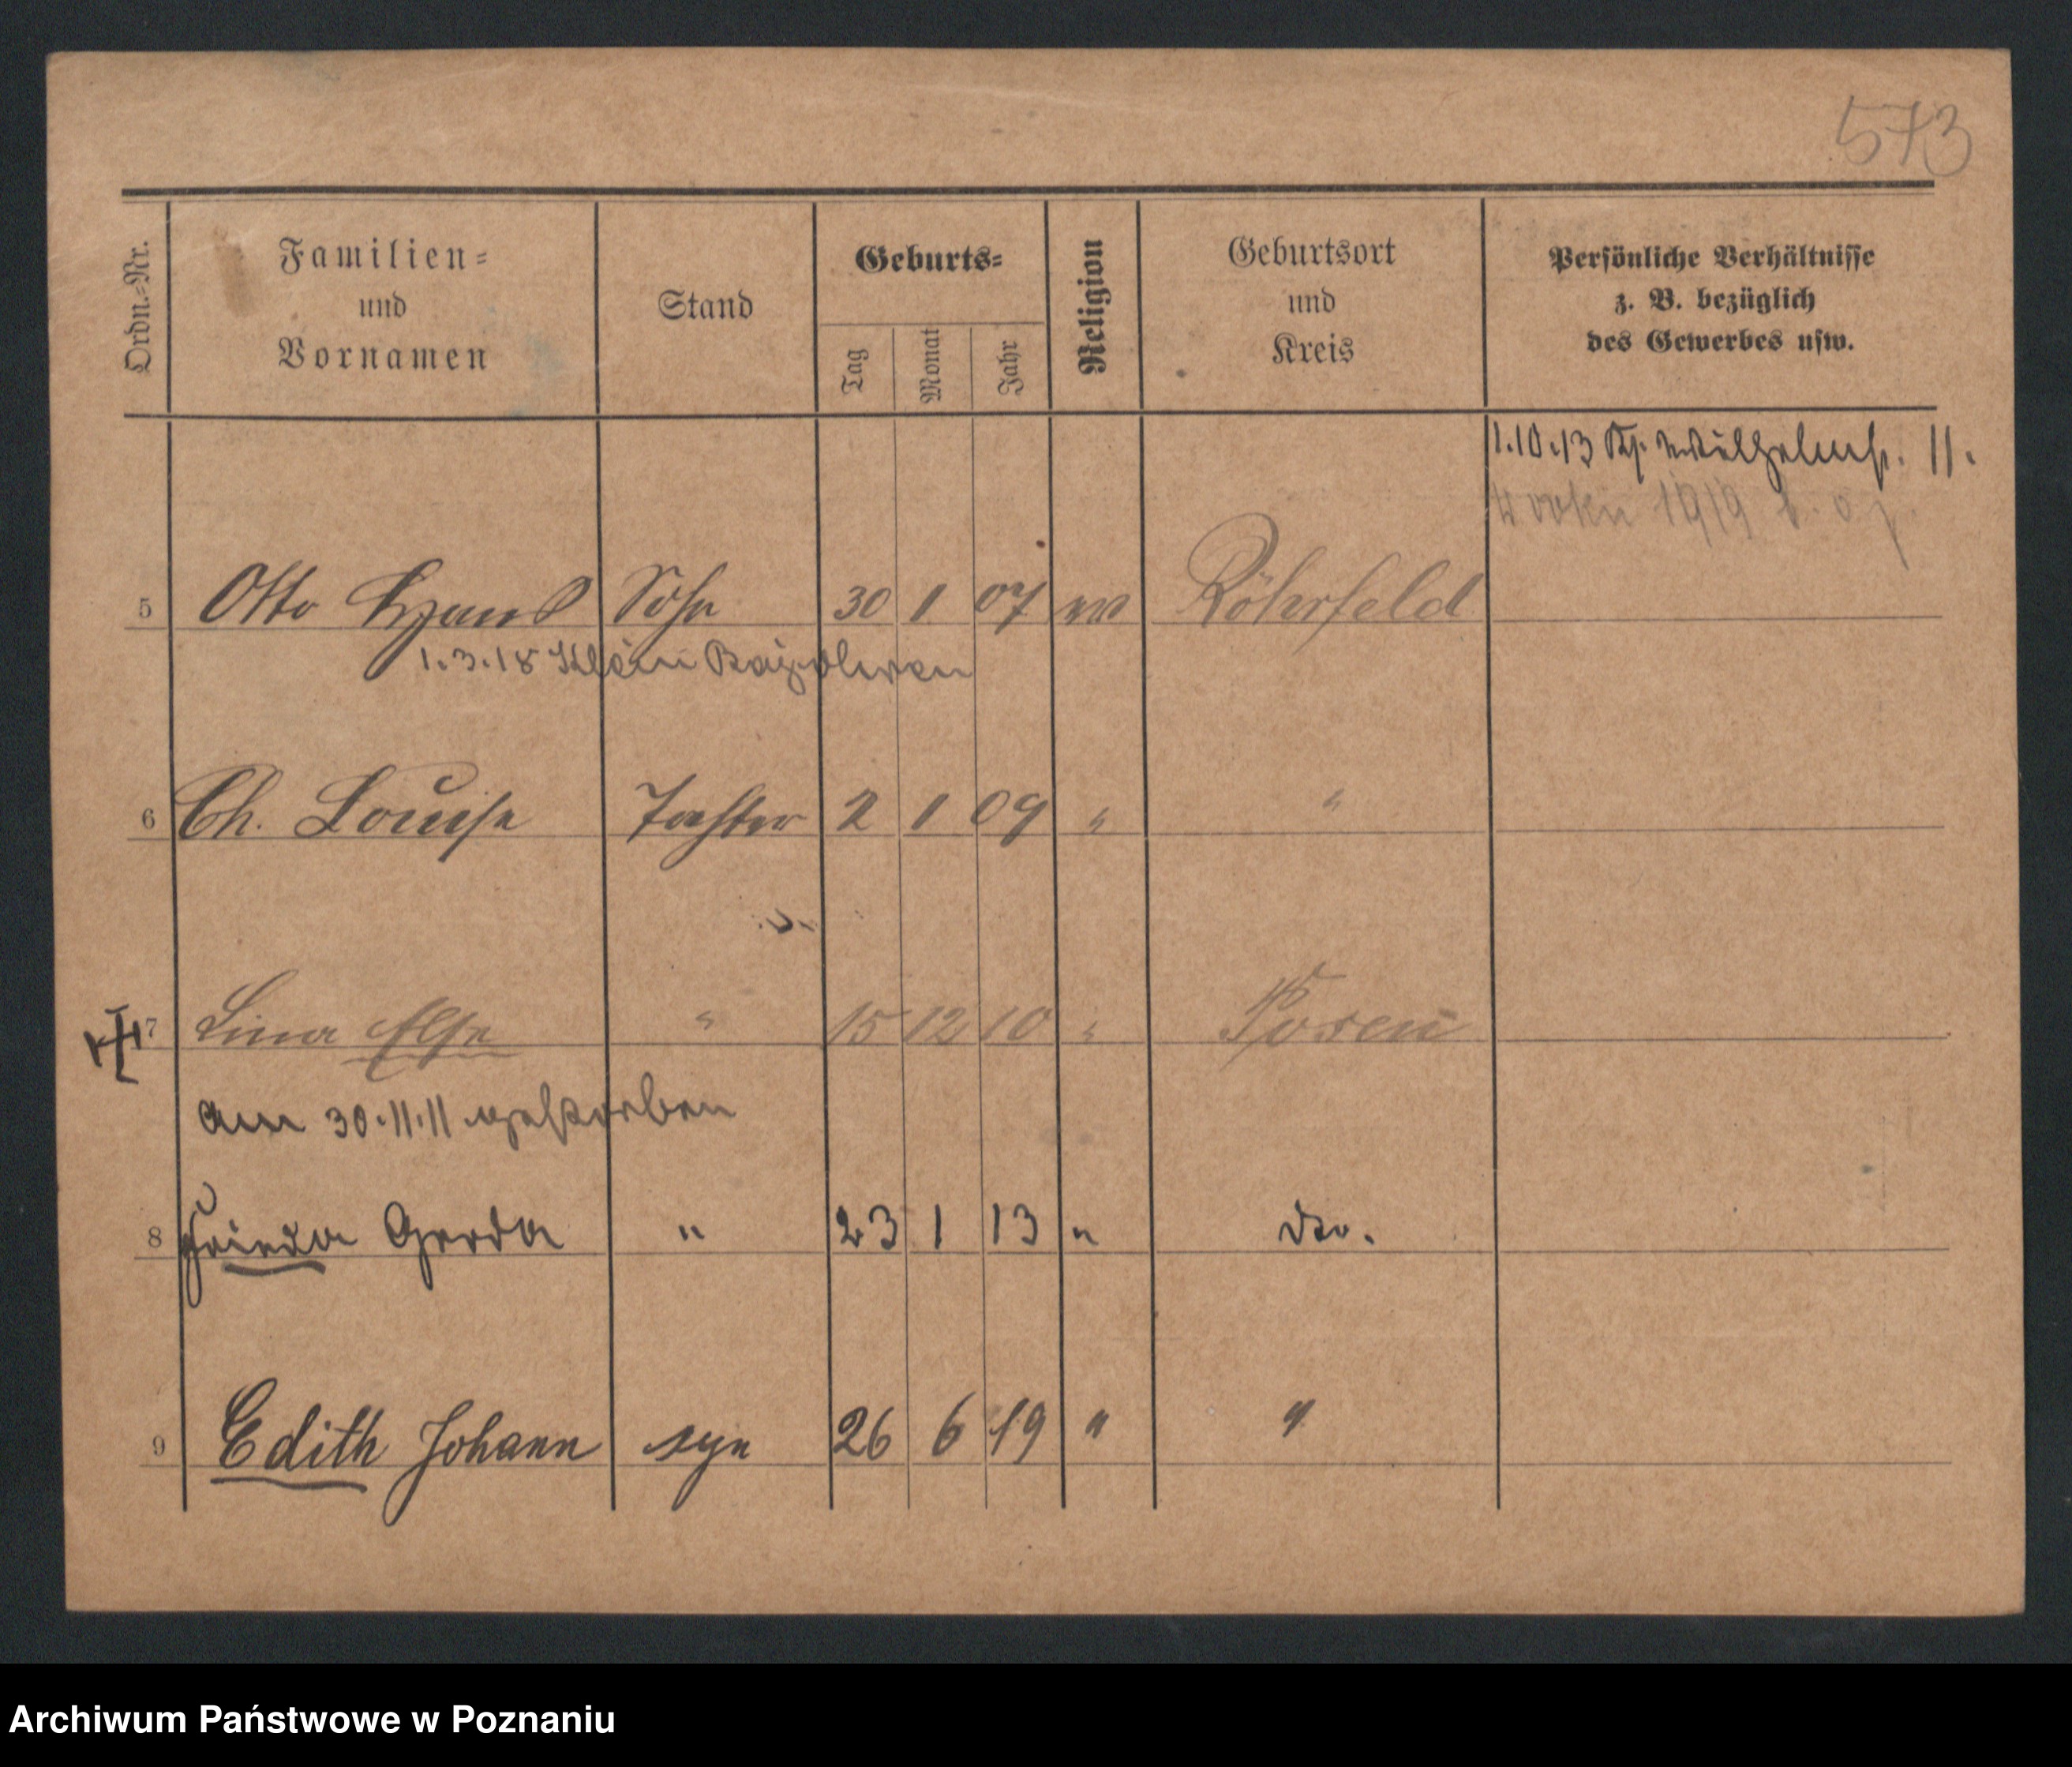 573
Ordn.-Nr.
Familien-
und
Vornamen
Stand
Geburts-
Tag
Monat
Jahr
Religion
Geburtsort
und
Kreis
Persönliche Verhältnisse
z. B. bezüglich
des Gewerbes usw.
1.10.13 11.
1919
5 Otto Hans Sohn 30 1 07 ev Röhrfeld
1.3.18 Klein
6 Ch. Louise Tochter 2 1 09 " "
7 Lina Else " 15 12 10 " Posen
am 30.11.11 gestorben
8 Frieda Gerda " 23 1 13 " dto.
9 Edith Johann syn 26 6 19 " "
Archiwum Państwowe w Poznaniu